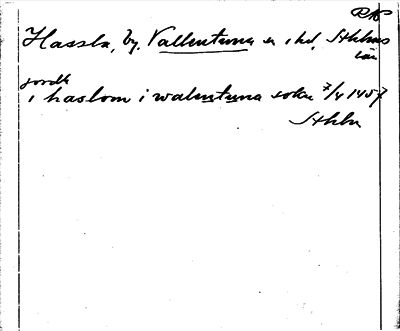 RAP
Hassla, by, Vallentuna sn o hd, Sthlms
län
jordh
i haslom i walentuna sokn 7/4 1457
Sthlm